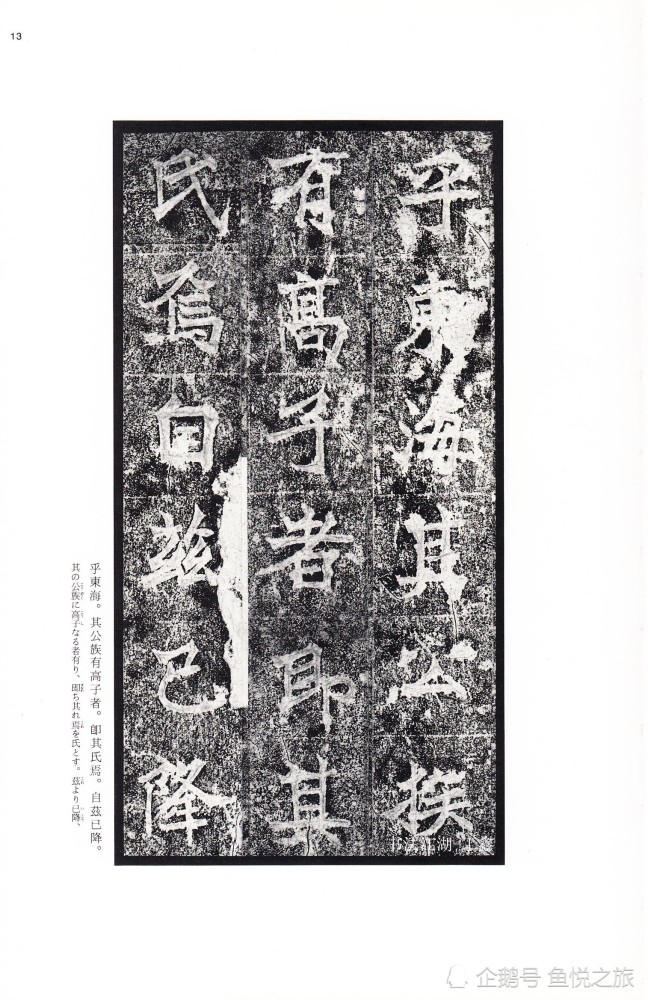 13
乎東海其公族
有高子者即其
氏焉自茲已降
乎東海。其公族有高子者。卽其氏焉。自茲已降。
其の公族に高子なる者有り、卽ち其れ焉を氏とす。茲より已降、
企鹅号 鱼悦之旅